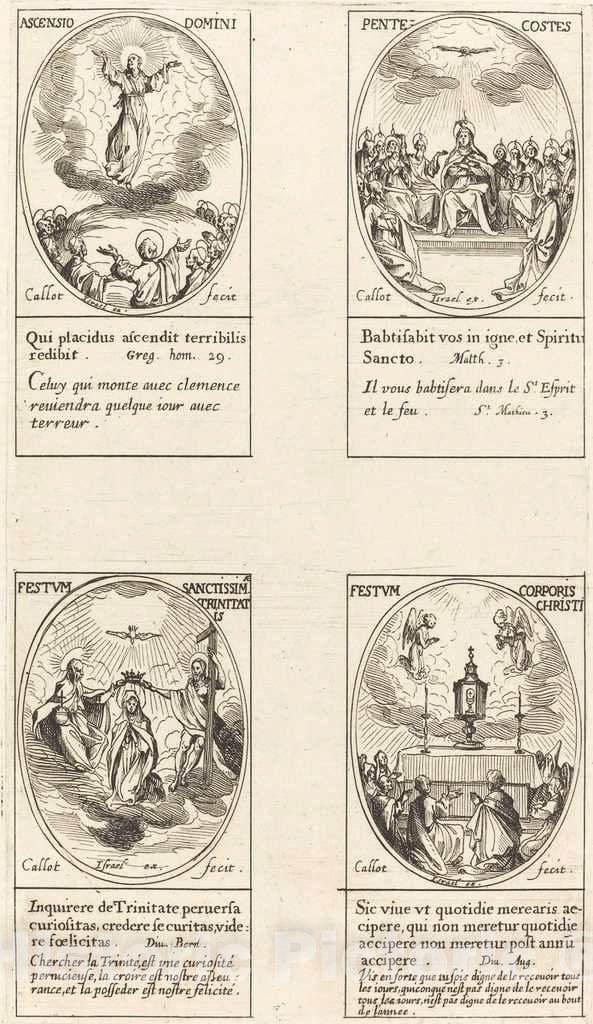 ASCENSIO DOMINI
Callot Israel ex. fecit
Qui placidus aſcendit terribilis
redibit . Greg. hom. 29.
Celuy qui monte auec clemence
reuiendra quelque iour auec
terreur .
PENTE- COSTES
Callot Israel ex. fecit .
Babtiſabit vos in igne, et Spiritu
Sancto . Matth. 3.
Il vous babtiſera dans le St Eſprit
et le feu . St. Mathieu . 3.
FESTVM SANCTISSIM.Æ
TRINITAT
IS
Callot Iſrael ex. fecit .
Inquirere de Trinitate peruerſa
curioſitas, credere ſecuritas, vide :
re fœlicitas . Diu. Bern.
Chercher la Trinité, eſt vne curioſité
pernicieuse, la croire eſt noſtre aſſeu :
rance, et la poſſeder eſt noſtre felicité .
FESTVM CORPORIS
CHRISTI
Callot Israel ex. fecit .
Sic viue vt quotidie merearis ac-
cipere, qui non meretur quotidie
accipere non meretur poſt annū
accipere . Diu. Aug.
Vis en ſorte que tu ſois digne de le receuoir tous
les iours, quiconque n'eſt pas digne de le receuoir
tous les iours, n'eſt pas digne de le receuoir au bout
de l'annee .